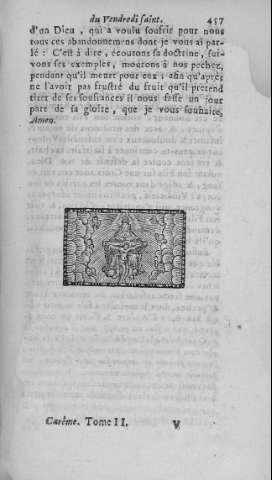 du Vendredi saint. 457
d'un Dieu, qui a voulu soufrir pour nous
tous ces abandonnemens dont je vous ai par-
lé : C'est à dire, écoutons sa doctrine, sui-
vons ses exemples, mourons à nos pechez,
pendant qu'il meurt pour eux ; afin qu'aprés
ne l'avoir pas frustré du fruit qu'il pretend
tirer de ses soufrances il nous fasse un jour
part de sa gloire, que je vous souhaite,
Amen.
Carême. Tome II. V